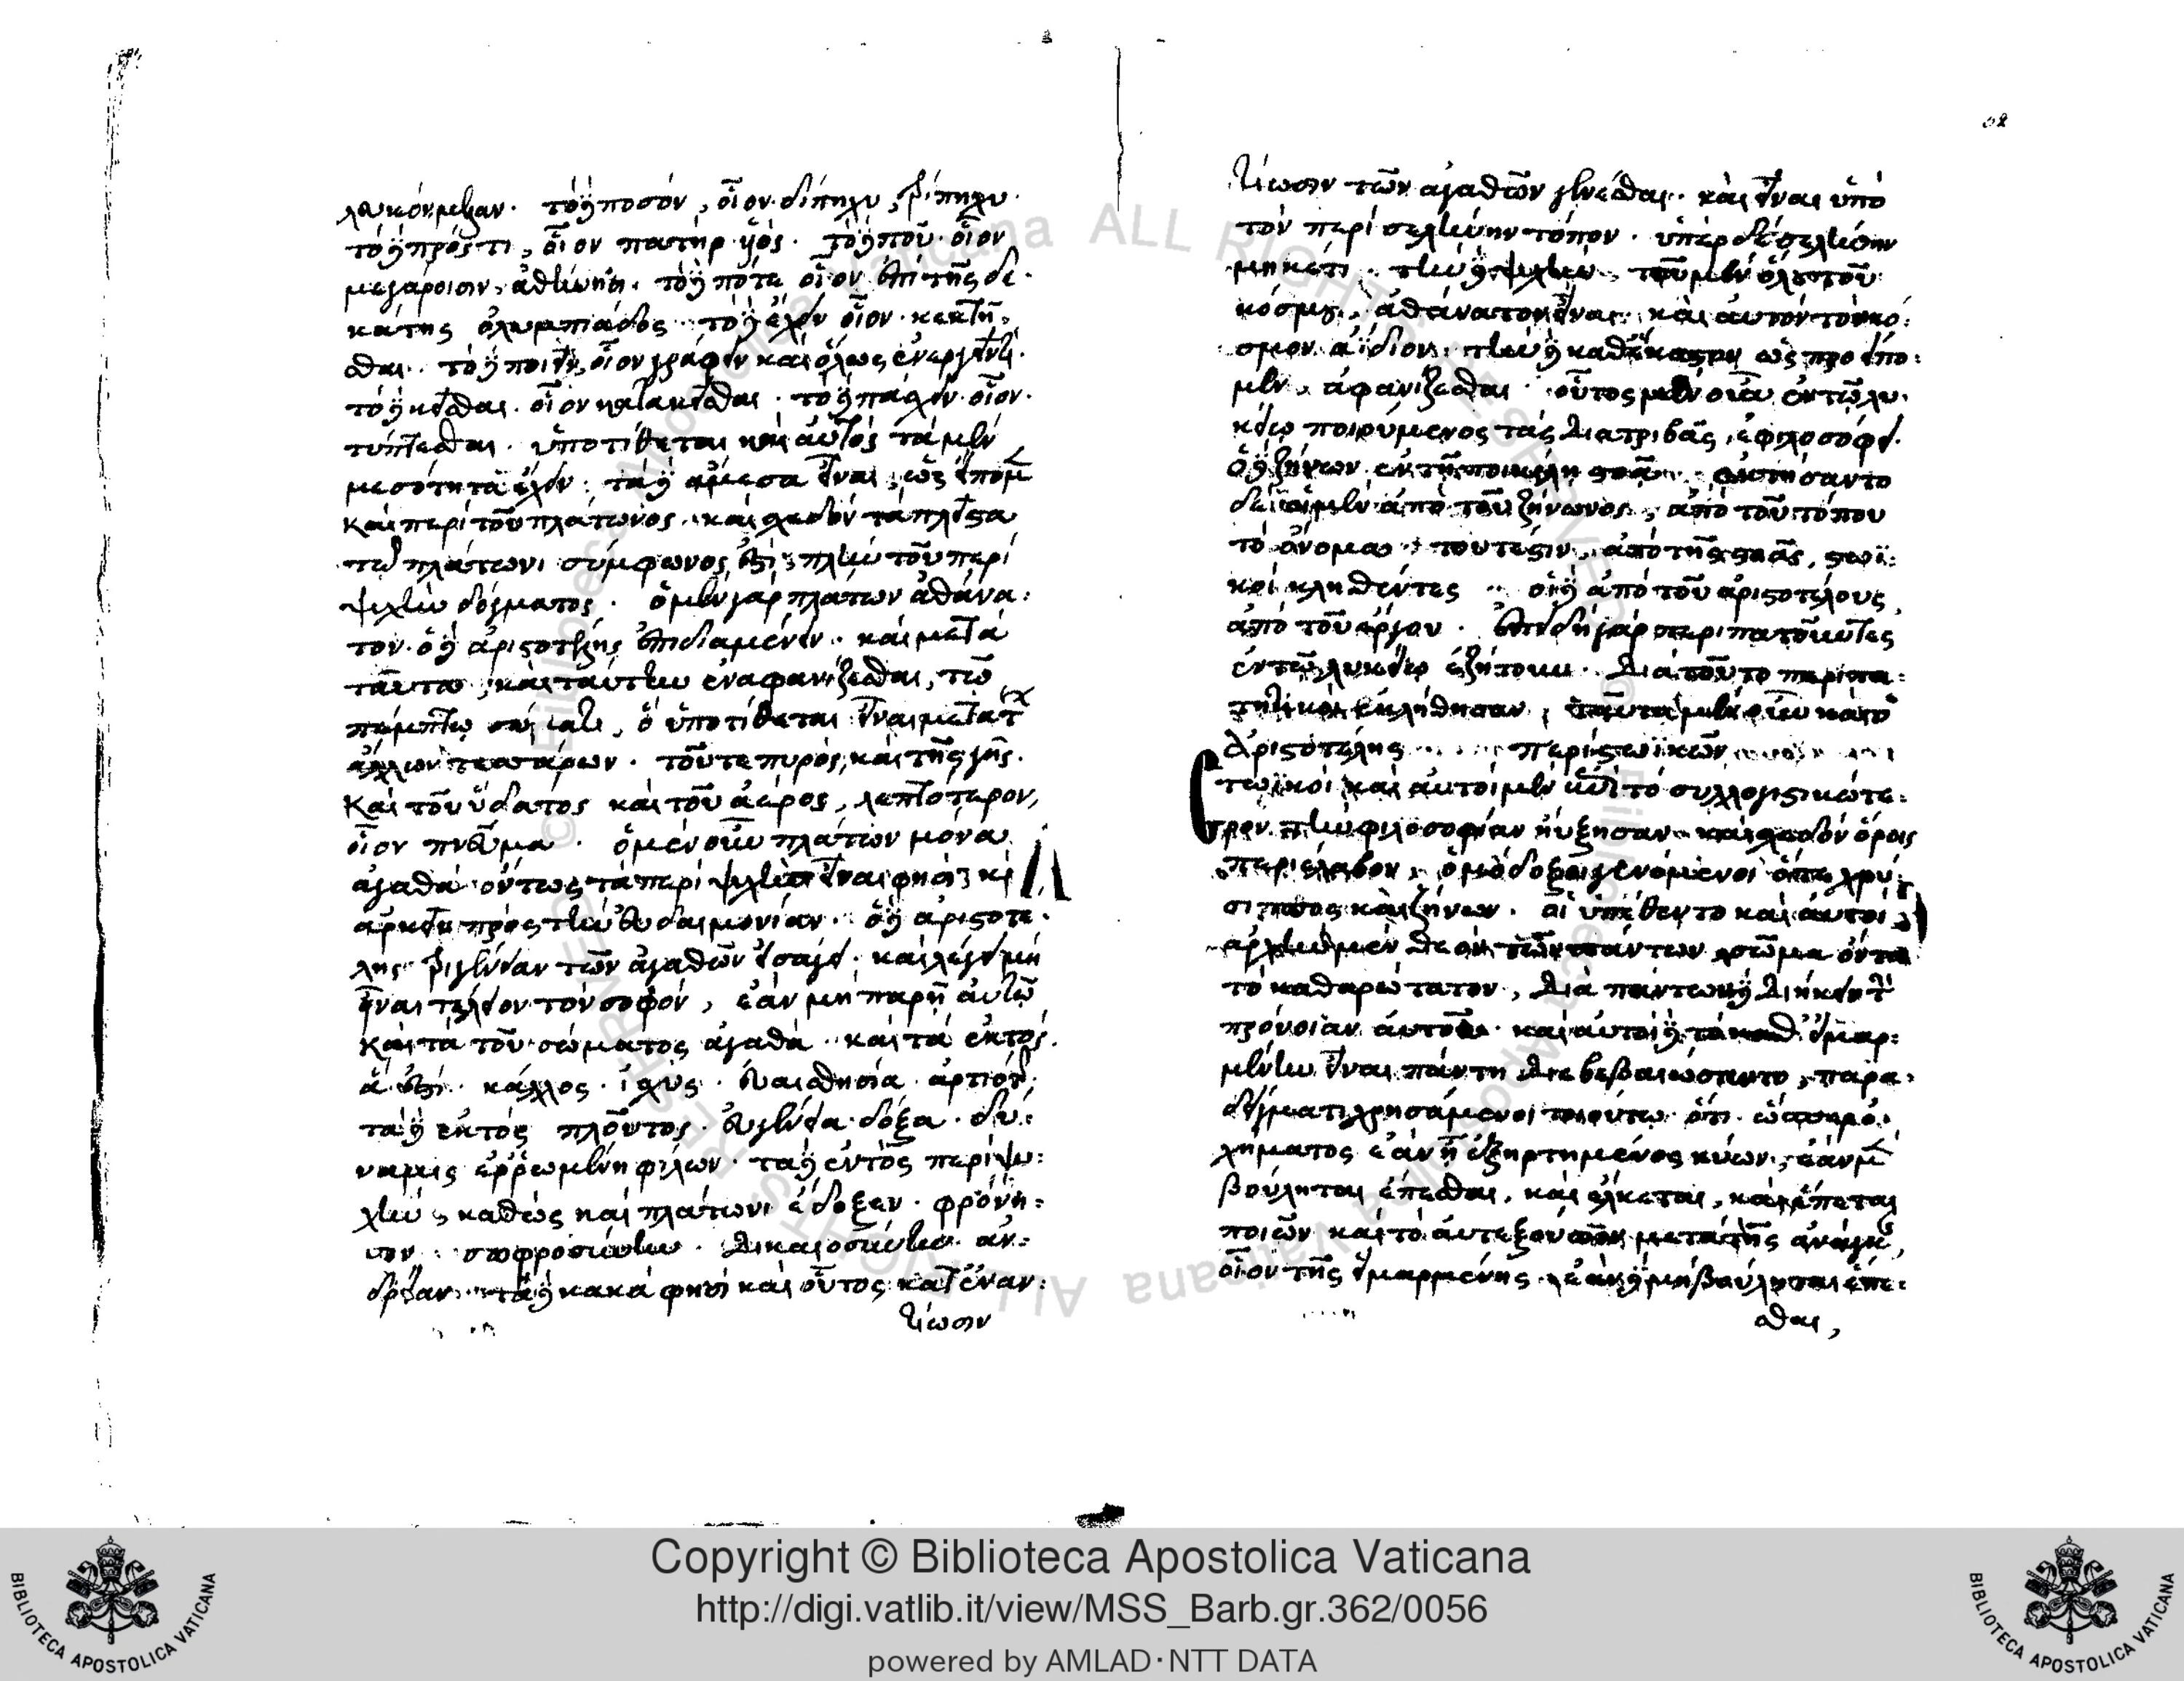 λευκόν, μέλαν. τὸ δὲ ποσὸν, οἷον δίπηχυ, τρίπηχυ.
τὸ δὲ πρός τι, οἷον πατὴρ υἱός. τὸ δὲ ποῦ οἷον
μεγάροισιν, ἀθήνησι. τὸ δὲ πότε οἷον ἐπὶ τῆς δε-
κάτης ὀλυμπιάδος. τὸ δὲ ἔχειν οἷον κεκτῆ-
σθαι. τὸ δὲ ποιεῖν, οἷον γράφειν καὶ ὅλως ἐνεργεῖν τι.
τὸ δὲ κεῖσθαι. οἷον κατακεῖσθαι. τὸ δὲ πάσχειν οἷον
τύπτεσθαι. ὑποτίθεται καὶ αὐτὸς τὰ μὲν
μεσότητα ἔχειν: τὰ δὲ ἄμεσα εἶναι, ὡς εἴπομεν
καὶ περὶ τοῦ πλάτωνος. καὶ σχεδὸν τὰ πλεῖστα
τῷ πλάτωνι σύμφωνος ἐστὶ, πλὴν τοῦ περὶ
ψυχὴν δόγματος. ὁ μὲν γὰρ πλάτων ἀθάνα:
τον. ὁ δὲ ἀριστοτέλης ἐπιδιαμένειν. καὶ μετὰ
ταῦτα, καὶ ταύτην ἐναφανίζεσθαι, τῷ
πέμπτῳ σώματι, ὃ ὑποτίθεται εἶναι μετὰ τῶν
ἄλλων τεσσάρων. τοῦ τε πυρὸς, καὶ τῆς γῆς.
καὶ τοῦ ὕδατος καὶ τοῦ ἀέρος, λεπτότερον,
οἷον πνεῦμα. ὁ μὲν οὖν πλάτων μόνα
ἀγαθὰ ὄντως τὰ περὶ ψυχὴν εἶναι φησὶ, καὶ
ἀρκεῖν πρὸς τὴν εὐδαιμονίαν. ὁ δὲ ἀριστοτέ-
λης τριγένειαν τῶν ἀγαθῶν εἰσάγει. καὶ λέγει μὴ
εἶναι τέλειον τὸν σοφόν, ἐὰν μὴ παρῇ αὐτῷ
καὶ τὰ τοῦ σώματος ἀγαθὰ. καὶ τὰ ἐκτός.
ἅ ἐστι. κάλλος. ἰσχὺς. εὐαισθησία. ἀρτιότης.
τὰ δὲ ἐκτὸς πλοῦτος. εὐγένεια. δόξα. δύ:
ναμις εἰρήνη φίλων. τὰ δὲ ἐντὸς περὶ ψυ:
χὴν, καθὼς καὶ πλάτωνι ἔδοξεν. φρόνη:
σιν. σωφροσύνην. δικαιοσύνην. ἀν:
δρείαν. τὰ δὲ κακά φησὶ καὶ οὗτος κατ' ἐναν:
τίωσιν
τίωσιν τῶν ἀγαθῶν γίνεσθαι. καὶ εἶναι ὑπὸ
τὸν περὶ σελήνην τόπον. ὑπὲρ δὲ σελήνην
μηκέτι. τὴν δὲ ψυχὴν, τοῦ μὲν ὅλου τοῦ
κόσμου, ἀθάνατον εἶναι. καὶ αὐτὸν τὸν κό:
σμον ἀΐδιον. τὴν δὲ καθ' ἕκαστον ὡς προείπο:
μεν, ἀφανίζεσθαι. οὗτος μὲν οὖν ἐν τῷ λυ:
κείῳ ποιούμενος τὰς διατριβὰς, ἐφιλοσόφει.
ὁ δὲ ζήνων ἐν τῇ ποικίλῃ στοᾷ. ἐκτήσαντο
δὲ οἱ μὲν ἀπὸ τοῦ ζήνωνος, ἀπὸ τοῦ τόπου
τὸ ὄνομα, τουτέστιν, ἀπὸ τῆς στοᾶς, στωϊ:
κοὶ κληθέντες. οἱ δὲ ἀπὸ τοῦ ἀριστοτέλους,
ἀπὸ τοῦ ἔργου. ἐπειδὴ γὰρ περιπατοῦντες
ἐν τῷ λυκείῳ ἐζήτουν. διὰ τοῦτο περιπα:
τητικοὶ ἐκλήθησαν, ταῦτα μὲν οὖν καὶ ὁ
Ἀριστοτέλης. περὶ στωϊκῶν
στωϊκοὶ καὶ αὐτοὶ μὲν ἐπὶ τὸ συλλογιστικώτε:
ρον τὴν φιλοσοφίαν ηὔξησαν. καὶ σχεδὸν ὅροις
περιέλαβον, ὁμόδοξοι γενόμενοι ὅ τε χρύ-
σιππος καὶ ζήνων. οἳ ὑπέθεντο καὶ αὐτοὶ
ἀρχὴν μὲν θεὸν τῶν πάντων, σῶμα ὄντα
τὸ καθαρώτατον, διὰ πάντων δὲ διήκειν τὴν
πρόνοιαν αὐτοῦ. καὶ αὐτοὶ δὲ τὸ καθ' εἱμαρ:
μένην εἶναι πάντη διεβεβαιώσαντο, παρα:
δείγματι χρησάμενοι τοιούτῳ. ὅτι ὥσπερ ὀ:
χήματος ἐὰν ᾖ ἐξηρτημένος κύων, ἐὰν μὲν
βούληται ἕπεσθαι, καὶ ἕλκεται, καὶ ἕπεται
ποιῶν καὶ τὸ αὐτεξούσιον μετὰ τῆς ἀνάγκης,
οἷον τῆς εἱμαρμένης. ἐὰν δὲ μὴ βούληται ἕπε:
σθαι,
Copyright © Biblioteca Apostolica Vaticana
http://digi.vatlib.it/view/MSS_Barb.gr.362/0056
powered by AMLAD·NTT DATA
BIBLIOTECA APOSTOLICA VATICANA
BIBLIOTECA APOSTOLICA VATICANA